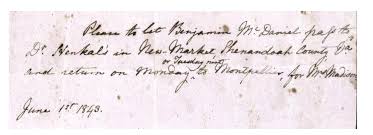 Please to let Benjamin McDaniel pass to
Dr. Henkel's in New Market Shenandoah County Va
or Tuesday next
and return on Monday to Montpellier, for Mrs Madison
June 1st 1843.